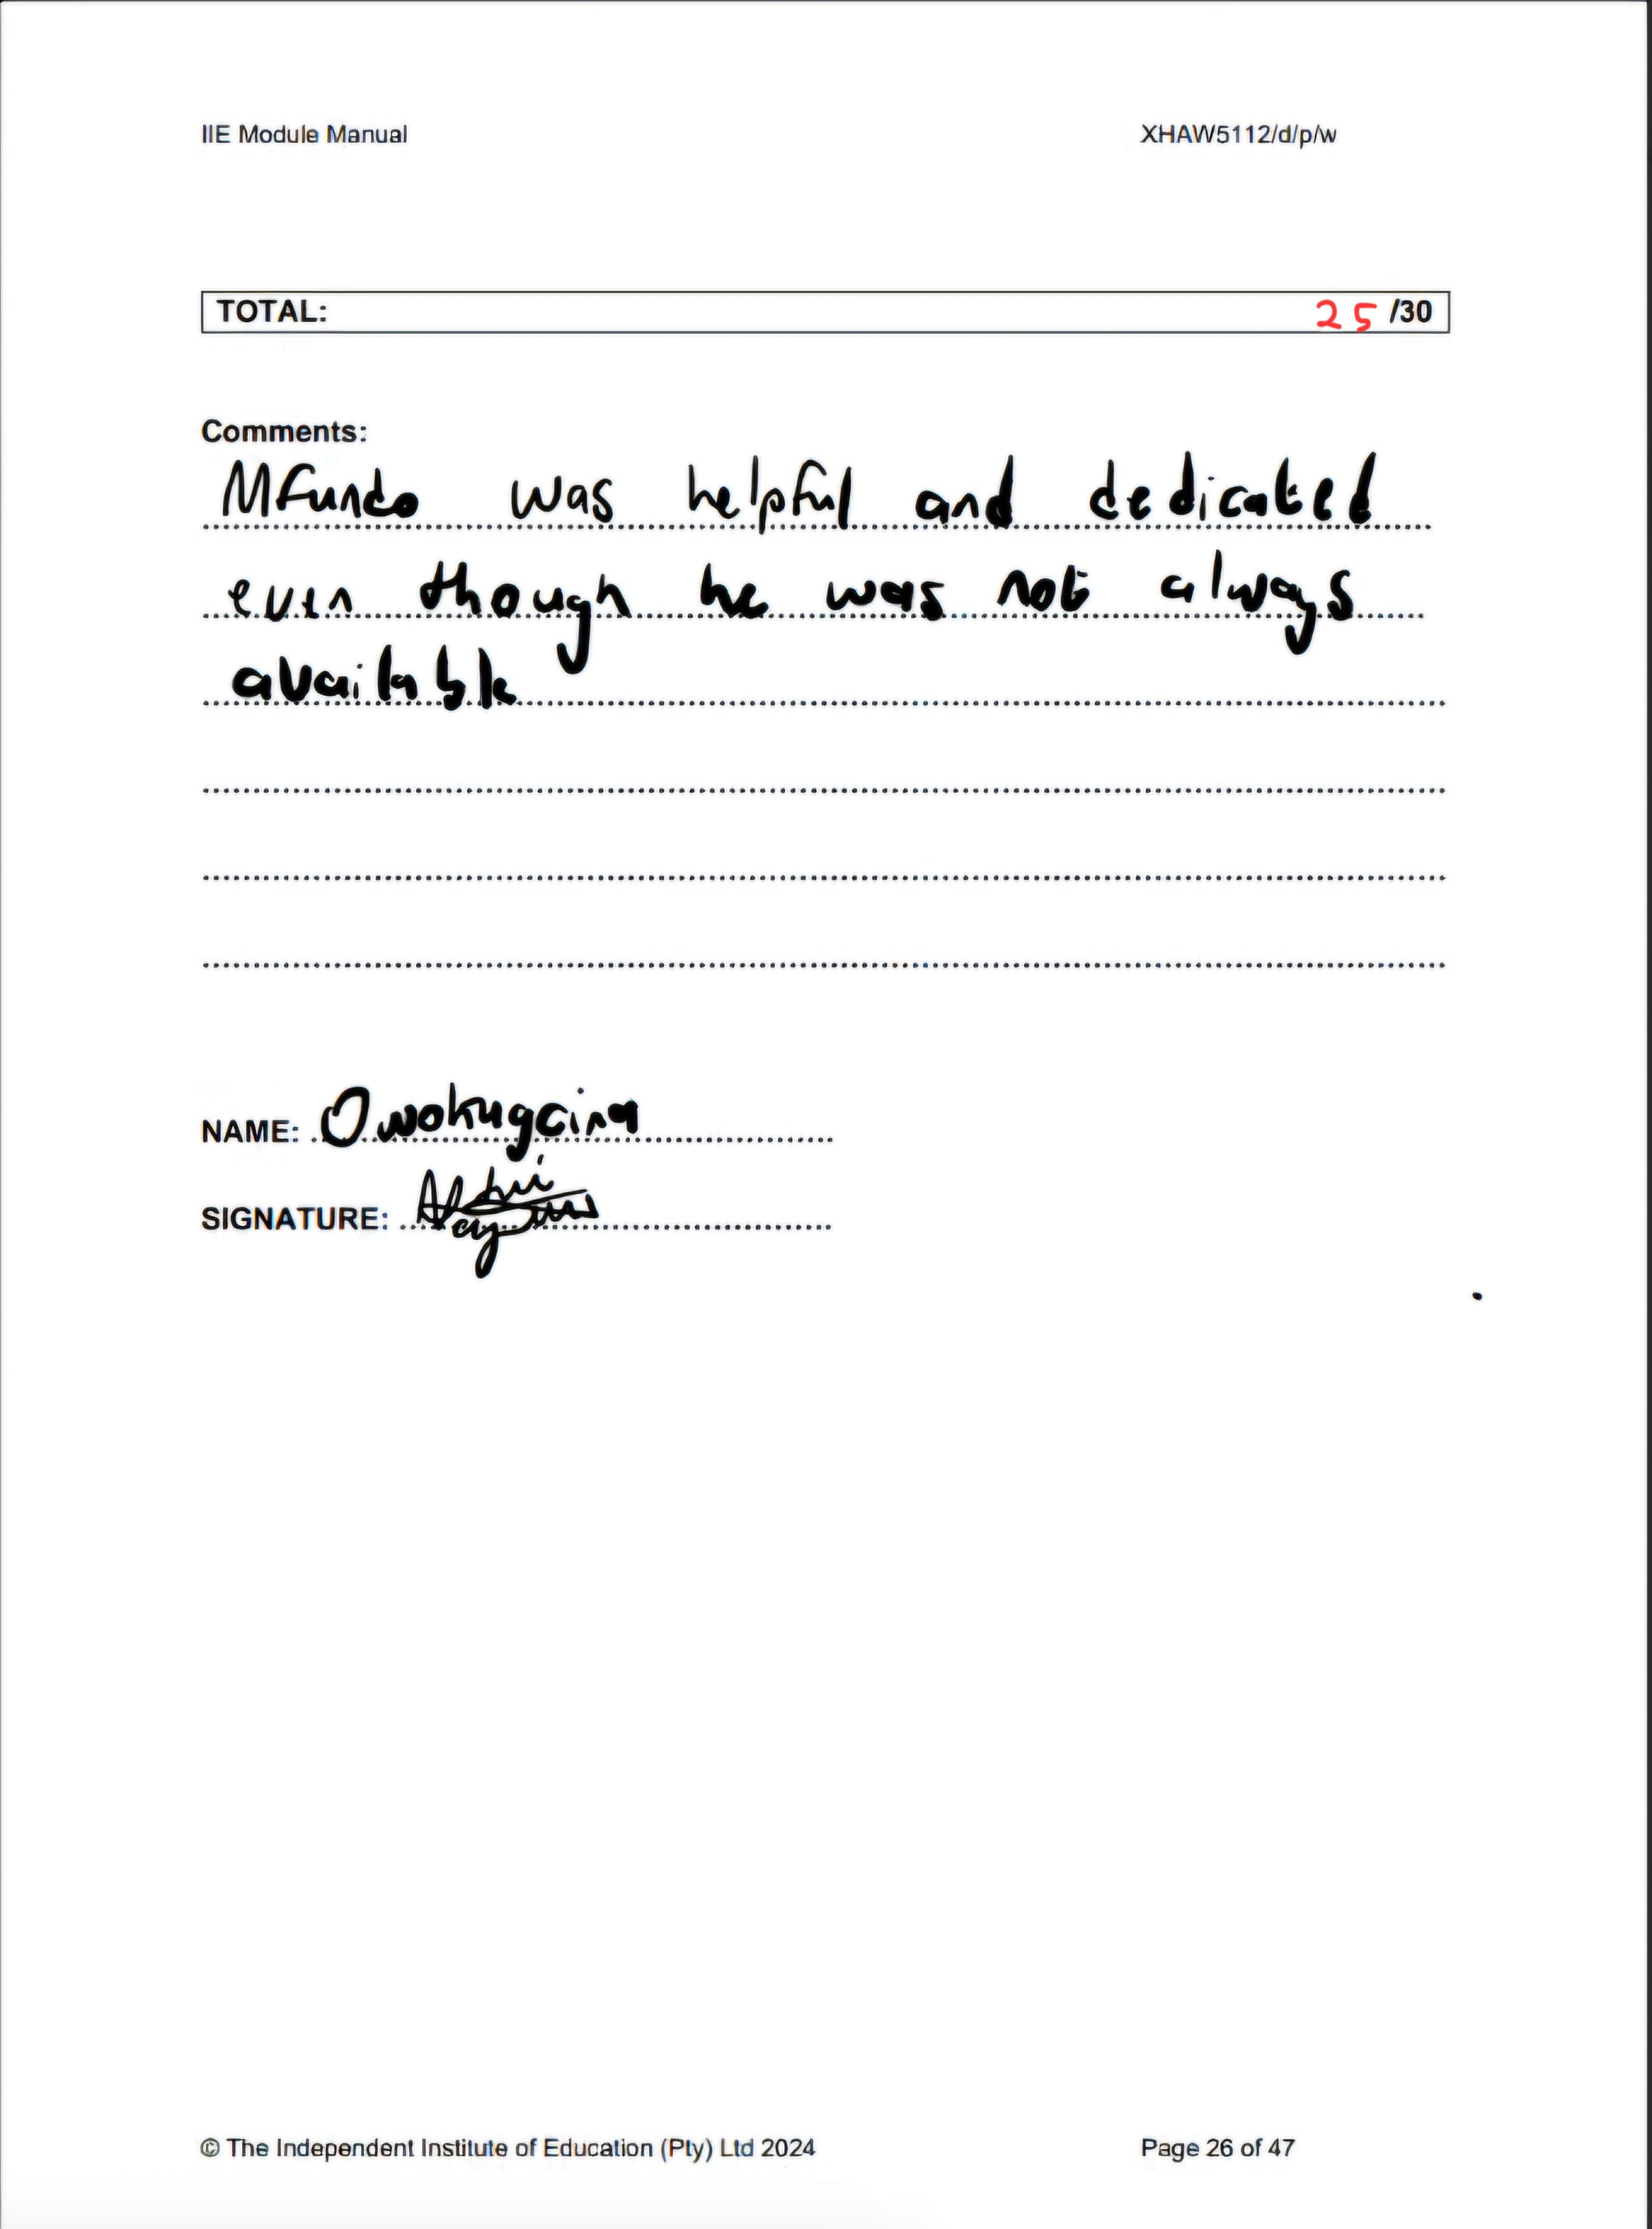 IIE Module Manual XHAW5112/d/p/w
TOTAL: 25 /30
Comments:
Mfundo was helpful and dedicated
even though he was not always
available
NAME: Owokugcina
SIGNATURE:
© The Independent Institute of Education (Pty) Ltd 2024 Page 26 of 47